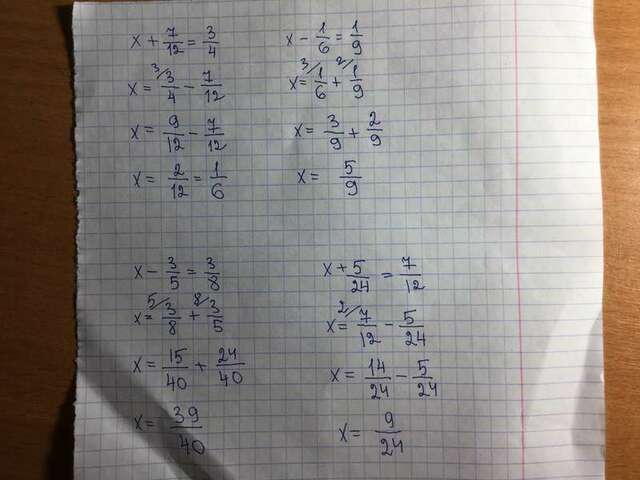 x + 7/12 = 3/4
x = ³⁄3/4 − 7/12
x = 9/12 − 7/12
x = 2/12 = 1/6
x − 1/6 = 1/9
x = ³⁄1/6 + ²⁄1/9
x = 3/9 + 2/9
x = 5/9
x − 3/5 = 3/8
x = ⁵⁄3/8 + ⁸⁄3/5
x = 15/40 + 24/40
x = 39/40
x + 5/24 = 7/12
x = ²⁄7/12 − 5/24
x = 14/24 − 5/24
x = 9/24